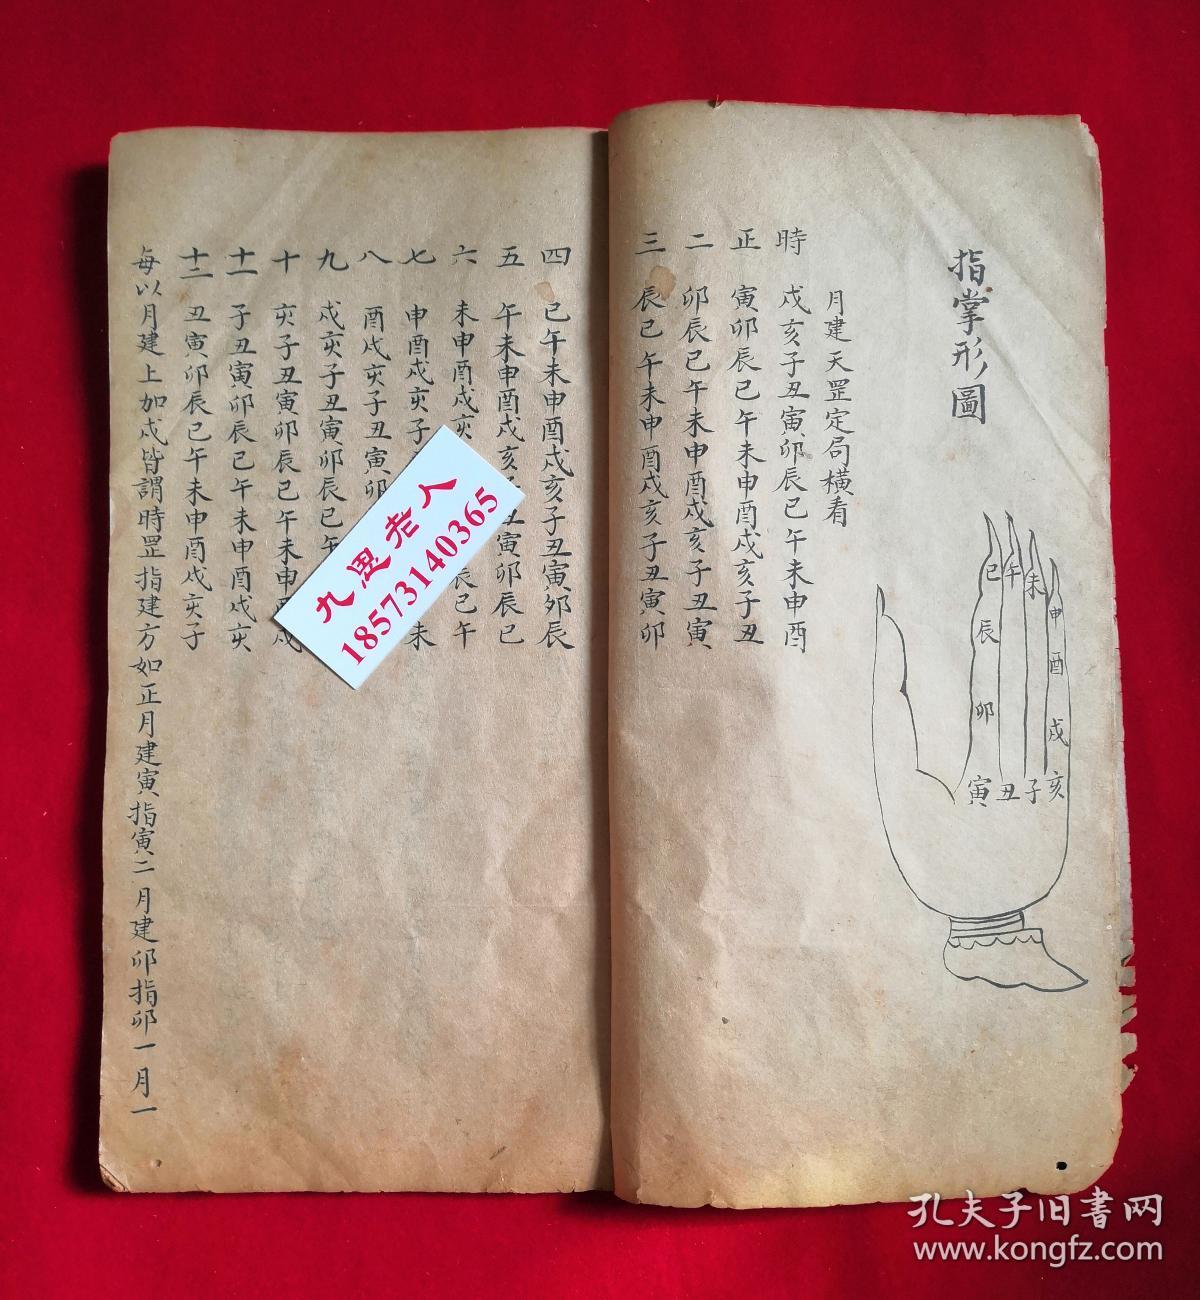 指掌形圖
巳 午 未 申
辰 酉
卯 戌
寅 丑 子 亥
月建天罡定局橫看
時 戌亥子丑寅卯辰巳午未申酉
正 寅卯辰巳午未申酉戌亥子丑
二 卯辰巳午未申酉戌亥子丑寅
三 辰巳午未申酉戌亥子丑寅卯
四 巳午未申酉戌亥子丑寅卯辰
五 午未申酉戌亥子丑寅卯辰巳
六 未申酉戌亥 辰巳午
七 申酉戌亥子 未
八 酉戌亥子丑寅卯
九 戌亥子丑寅卯辰巳午
十 亥子丑寅卯辰巳午未申酉戌
十一 子丑寅卯辰巳午未申酉戌亥
十二 丑寅卯辰巳午未申酉戌亥子
每以月建上加戌皆謂時罡指建方如正月建寅指寅二月建卯指卯一月一
九恩老人
18573140365
孔夫子旧書网
www.kongfz.com